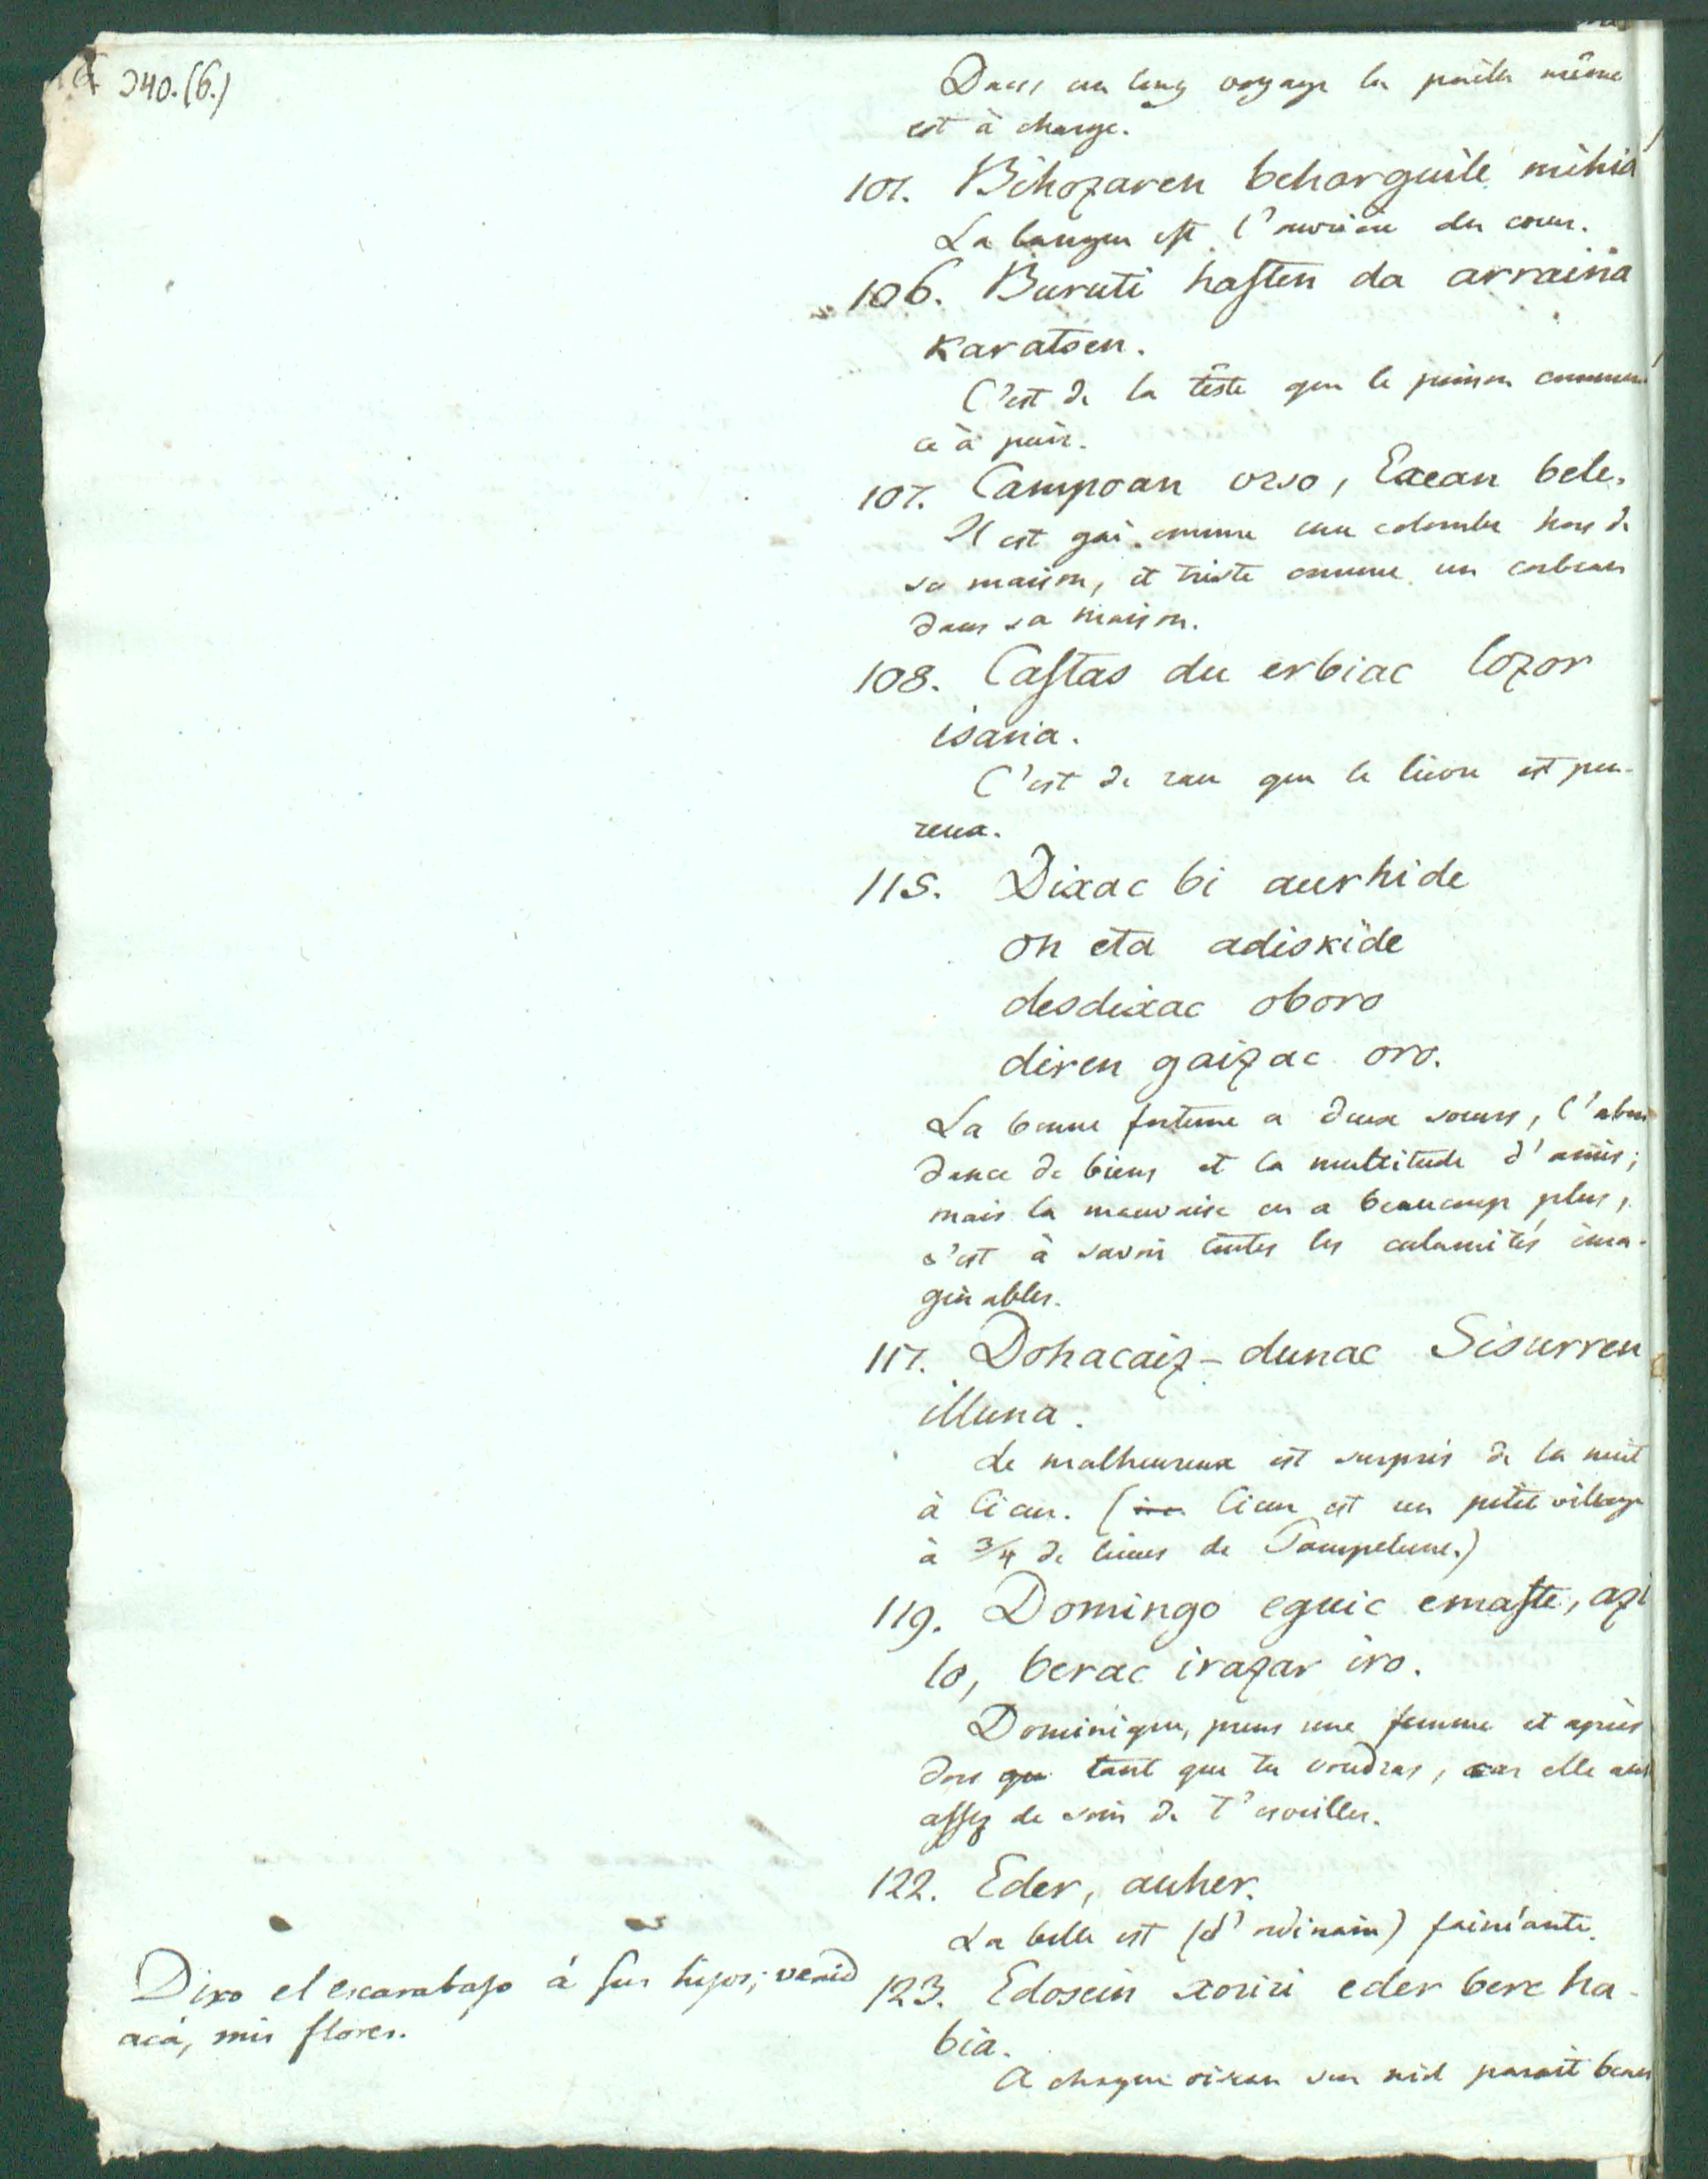 240.(6.)
Dans un long voyage la paille même
est à charge.
101. Bihozaren beharguile mihia
La langue est l'ouvriere du coeur.
106. Buruti hasten da arraina
karatsen.
C'est de la teste que le poisson commen
ce à puir.
107. Campoan urso, Etxean bele.
Il est gai comme une colombe hors de
sa maison, et triste comme un corbeau
dans sa maison.
108. Castas du erbiac lozor
isaria.
C'est de race que le lievre est peu-
reux.
115. Dixac bi aurhide
on eta adiskide
desdixac oboro
diren gaizac oro.
La bonne fortune a deux soeurs, l'abon
dance de biens et la multitude d'amis;
mais la mauvaise en a beaucoup plus,
c'est à savoir toutes les calamités ima-
ginables.
117. Dohacaiz-dunac Sisurren
illuna.
Le malheureux est surpris de la nuit
à Cicur. ( Cicur est un petit village
à 3/4 de lieues de Pampelune.)
119. Domingo eguic emaste, azi
lo, berac irazar iro.
Dominique, prens une femme et après
dors tant que tu voudras, car elle aura
assez de soin de t'esveiller.
122. Eder, auher.
La belle est (d'ordinaire) fainéante.
123. Edosein xoriri eder bere ha-
bia.
A chaque oiseau son nid paroit beau
Dixo el escarabajo á sus hijos; venid
acá, mis flores.